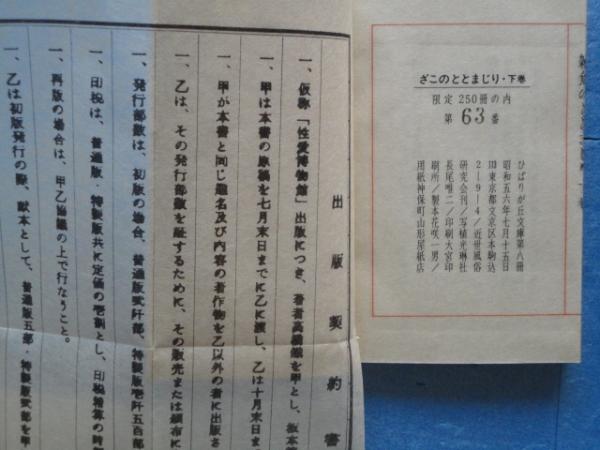 ざこのととまじり・下巻
限定250冊の内
第63番
ひばりが丘文庫第八冊
昭和五六年七月十五日
東京都文京区本駒込
2-9-4/近世風俗
研究会刊/写植光琳社
長尾唯二/印刷大宮印
刷所/製本花咲一男/
用紙神保町山形屋紙店
出版契約書
一、仮称「性愛博物館」出版につき、著者高橋鐵を甲とし、坂本篤
一、甲は本書の原稿を七月末日までに乙に渡し、乙は十月末日ま
一、甲が本書と同じ題名及び内容の著作物を乙以外の者に出版さ
一、乙は、その発行部数を証するために、その販売または頒布に
一、発行部数は、初版の場合、普通版弐阡部、特製版壱阡五百部
一、印税は、普通版・特製版共に定価の壱割とし、印税精算の時期
一、再版の場合は、甲乙協議の上で行なうこと。
一、乙は初版発行の際、献本として、普通版五部・特製版弐部を甲